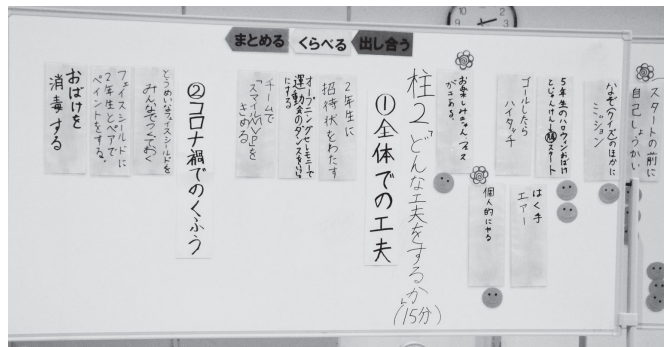 まとめる
くらべる
出し合う
スタートの前に
自己しょうかい
なぞ(クイズ)のほかに
ミッション
5年生のハロウィンおばけ
とじゃんけん
スタート
ゴールしたら
ハイタッチ
はく手
エアー
お楽しみ
がある。
個人的にやる
柱2「どんな工夫をするか」
(15分)
①全体での工夫
2年生に
招待状をわたす
オープニングセレモニーで
運動会のダンスを
にする
チームで
「スマイルMVP」を
きめる
②コロナ禍でのくふう
とうめいなフェイスシールドを
みんなでつけて
フェイスシールドに
2年生とペアで
ペイントをする。
おばけを
消毒する